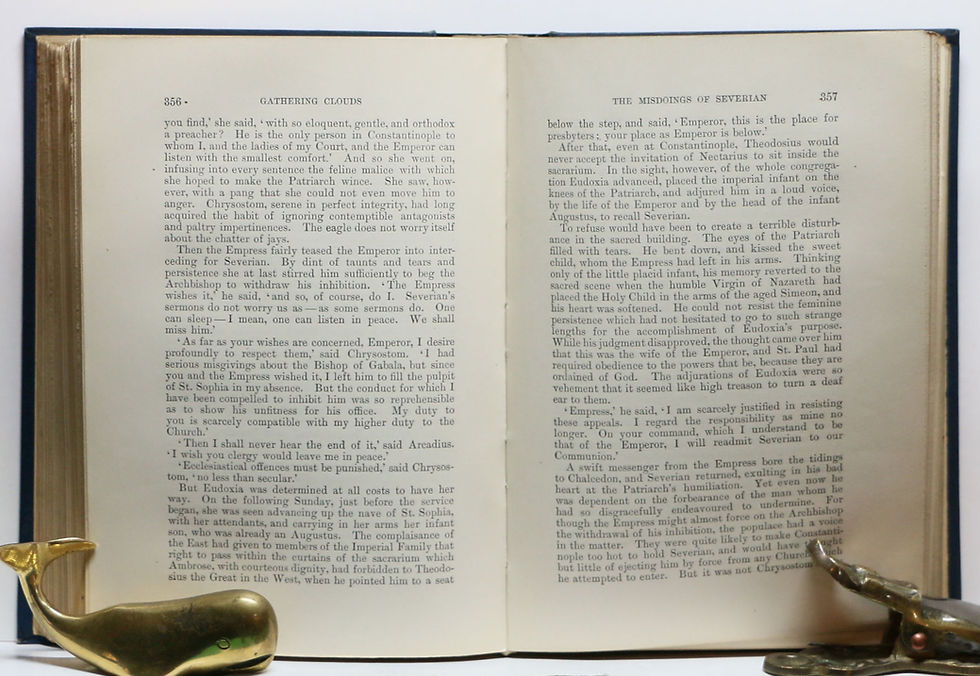 356
GATHERING CLOUDS
you find,' she said, 'with so eloquent, gentle, and orthodox
a preacher? He is the only person in Constantinople to
whom I, and the ladies of my Court, and the Emperor can
listen with the smallest comfort.' And so she went on,
infusing into every sentence the feline malice with which
she hoped to make the Patriarch wince. She saw, how-
ever, with a pang that she could not even move him to
anger. Chrysostom, serene in perfect integrity, had long
acquired the habit of ignoring contemptible antagonists
and paltry impertinences. The eagle does not worry itself
about the chatter of jays.
Then the Empress fairly teased the Emperor into inter-
ceding for Severian. By dint of taunts and tears and
persistence she at last stirred him sufficiently to beg the
Archbishop to withdraw his inhibition. 'The Empress
wishes it,' he said, 'and so, of course, do I. Severian's
sermons do not worry us as—as some sermons do. One
can sleep—I mean, one can listen in peace. We shall
miss him.'
'As far as your wishes are concerned, Emperor, I desire
profoundly to respect them,' said Chrysostom. 'I had
serious misgivings about the Bishop of Gabala, but since
you and the Empress wished it, I left him to fill the pulpit
of St. Sophia in my absence. But the conduct for which I
have been compelled to inhibit him was so reprehensible
as to show his unfitness for his office. My duty to
you is scarcely compatible with my higher duty to the
Church.'
'Then I shall never hear the end of it,' said Arcadius.
'I wish you clergy would leave me in peace.'
'Ecclesiastical offences must be punished,' said Chrysos-
tom, 'no less than secular.'
But Eudoxia was determined at all costs to have her
way. On the following Sunday, just before the service
began, she was seen advancing up the nave of St. Sophia,
with her attendants, and carrying in her arms her infant
son, who was already an Augustus. The complaisance of
the East had given to members of the Imperial Family that
right to pass within the curtains of the sacrarium which
Ambrose, with courteous dignity, had forbidden to Theodo-
sius the Great in the West, when he pointed him to a seat
THE MISDOINGS OF SEVERIAN
357
below the step, and said, 'Emperor, this is the place for
presbyters; your place as Emperor is below.'
After that, even at Constantinople, Theodosius would
never accept the invitation of Nectarius to sit inside the
sacrarium. In the sight, however, of the whole congrega-
tion Eudoxia advanced, placed the imperial infant on the
knees of the Patriarch, and adjured him in a loud voice,
by the life of the Emperor and by the head of the infant
Augustus, to recall Severian.
To refuse would have been to create a terrible disturb-
ance in the sacred building. The eyes of the Patriarch
filled with tears. He bent down, and kissed the sweet
child, whom the Empress had left in his arms. Thinking
only of the little placid infant, his memory reverted to the
sacred scene when the humble Virgin of Nazareth had
placed the Holy Child in the arms of the aged Simeon, and
his heart was softened. He could not resist the feminine
persistence which had not hesitated to go to such strange
lengths for the accomplishment of Eudoxia's purpose.
While his judgment disapproved, the thought came over him
that this was the wife of the Emperor, and St. Paul had
required obedience to the powers that be, because they are
ordained of God. The adjurations of Eudoxia were so
vehement that it seemed like high treason to turn a deaf
ear to them.
'Empress,' he said, 'I am scarcely justified in resisting
these appeals. I regard the responsibility as mine no
longer. On your command, which I understand to be
that of the Emperor, I will readmit Severian to our
Communion.'
A swift messenger from the Empress bore the tidings
to Chalcedon, and Severian returned, exulting in his bad
heart at the Patriarch's humiliation. Yet even now he
was dependent on the forbearance of the man whom he
had so disgracefully endeavoured to undermine. For
though the Empress might almost force on the Archbishop
the withdrawal of his inhibition, the populace had a voice
in the matter. They were quite likely to make Constanti-
nople too hot to hold Severian, and would have
but little of ejecting him by force from any Church
he attempted to enter. But it was not Chrysostom